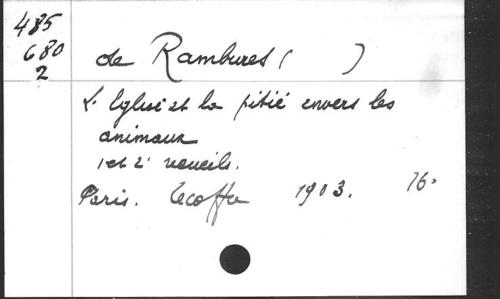 485
680
2
de Rambures ( )
L'Eglise et la pitié envers les
animaux
1 et 2e recueils.
Paris. Lecoffre 1903. 16°